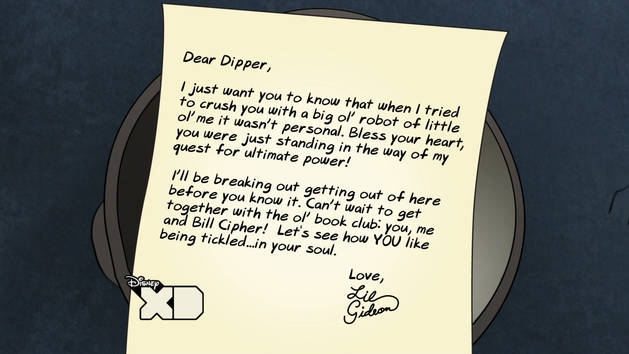 Dear Dipper,
I just want you to know that when I tried
to crush you with a big ol' robot of little
ol' me it wasn't personal. Bless your heart,
you were just standing in the way of my
quest for ultimate power!
I'll be breaking out getting out of here
before you know it. Can't wait to get
together with the ol' book club: you, me
and Bill Cipher! Let's see how YOU like
being tickled...in your soul.
Love,
Lil
Gideon
Disney
XD